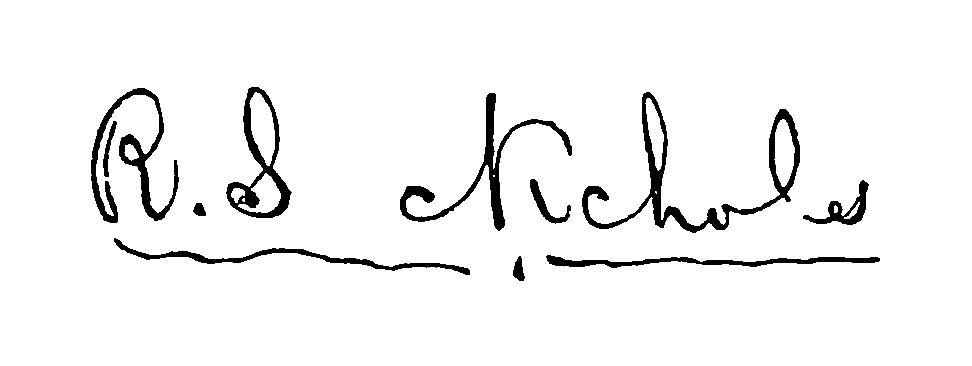 R. S Nichols